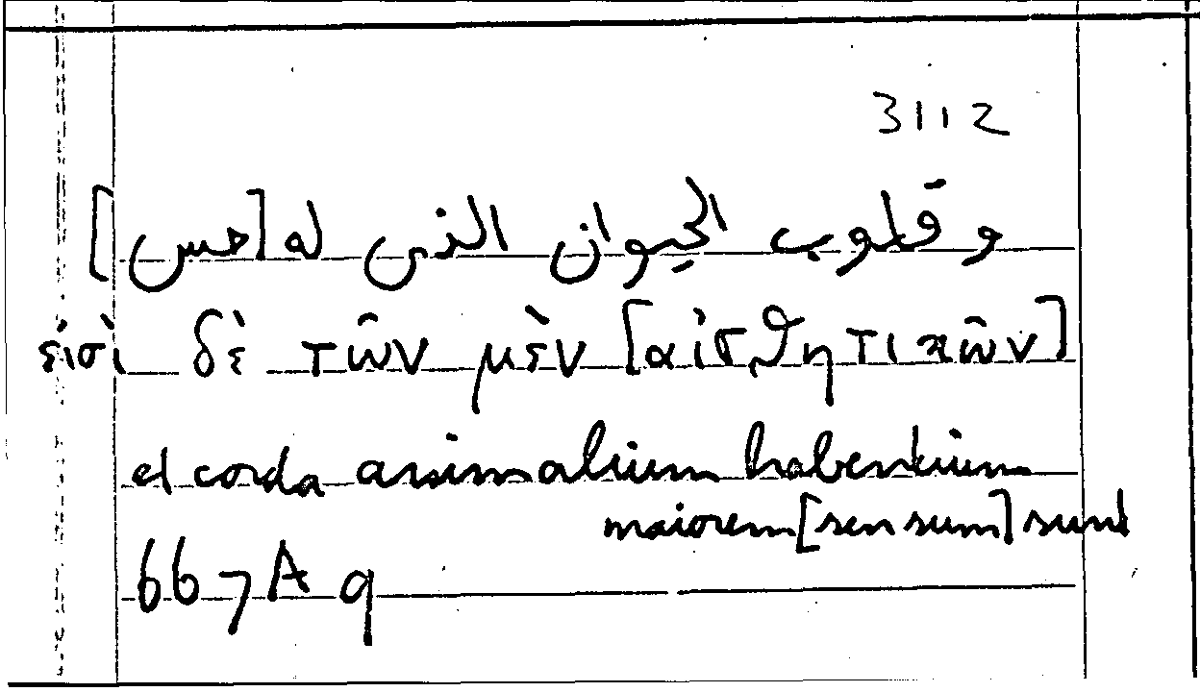 3112
وقلوب الحيوان الذى له [حس]
εἰσὶ δὲ τῶν μὲν [αἰσθητικῶν]
et corda animalium habentium
maiorem [sensum] sunt
667A9